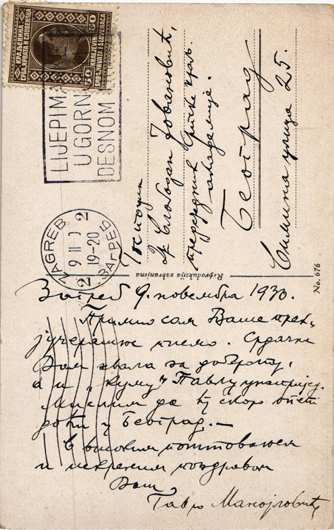 КРАЉЕВИНА
СРБА, ХРВАТА И СЛОВЕНАЦА
LIJEPIM
U GORNJ
DESNOM
ZAGREB 2
9 II 0
19-20
2 ЗАГРЕБ
Господин
Др Слободан Јовановић,
председник Српске краљ.
академије
Београд
улица 25.
Reprodukcija zabranjena
No. 676
Загреб 9. новембра 1930.
Примио сам Ваше преk-
јучерашње писмо. Срдачно
Вам хвала на доброти,
а и „куму" Павлу
мислим да ћу скоро опет
доћи у Београд.—
С високим поштовањем
и искреним поздравом
Ваш
Гавро Манојловић